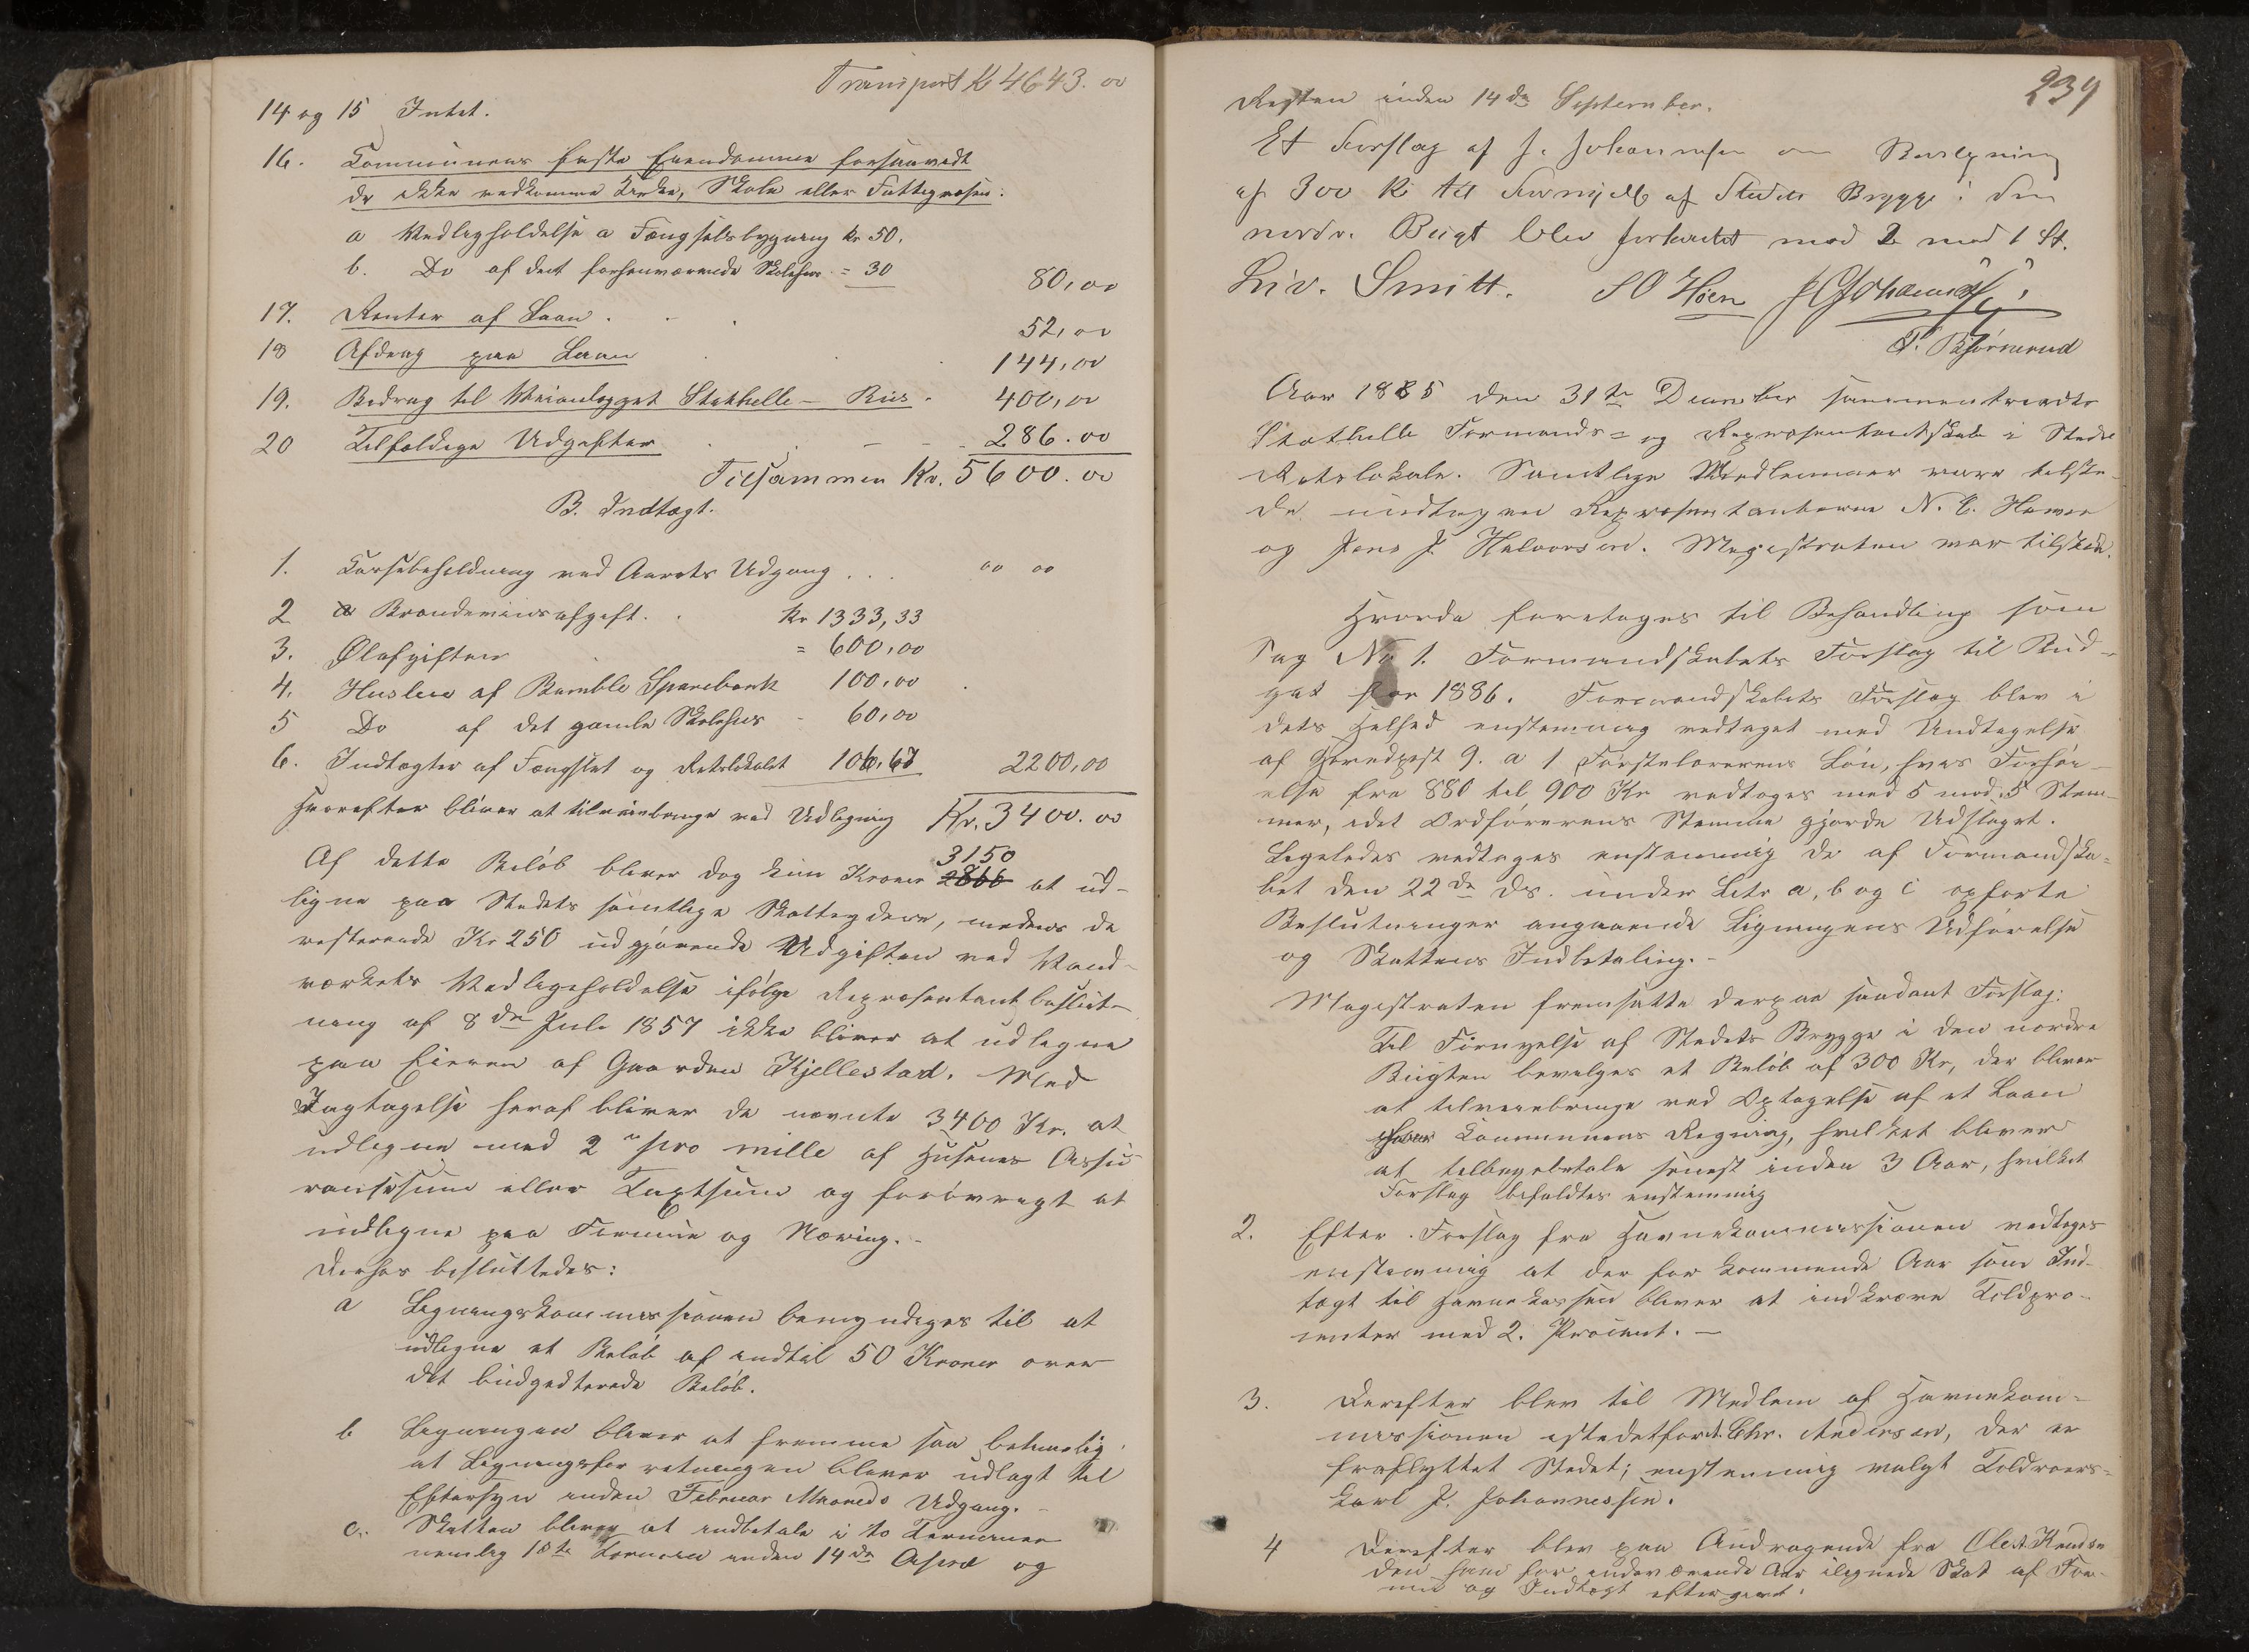 Transport Kr 4643.00
14 og 15 Intet.
16. Communens faste Eiendomme forsaavidt
de ikke vedkomme Kirke, Skole eller Fattigvæsen:
a Vedligholdelse a Fængselsbygning kr 50.
b. Do af det forhenværende Skolehus = 30 80,00
17. Renter af Laan . . . 52,00
18 Afdrag paa Laan . . 144,00
19. Bidrag til Veianlægget Stathelle - Riis . 400,00
20 Tilfældige Udgifter . . - - 286.00
Tilsammen Kr. 5600.00
B. Indtægt.
1. Kassebeholdning ved Aarets Udgang . . . 00 00
2 a Brændevinsafgift . . Kr 1333,33
3. Ølafgiften . = 600,00
4. Husleie af Bamble Sparebank 100,00
5 Do af det gamle Skolehus - 60,00
6. Indtægter af Fængslet og Retslokalet 106,67 2200,00
Hvorefter bliver at tilveiebringe ved Udligning Kr. 3400.00
3150
Af dette Beløb bliver dog kun Kroner 2866 at ud-
ligne paa Stedets samtlige Skatteydere, medens de
resterende Kr 250 udgjørende Udgiften ved Vand-
værkets Vedligeholdelse ifølge Repræsentantbeslut-
ning af 8de Juli 1857 ikke bliver at udligne
paa Eieren af Gaarden Kjellestad. Med
Iagtagelse heraf bliver de nævnte 3400 Kr. at
udligne med 2 pro mille af Husenes Assu-
ransesum eller Taxtsum og forøvrigt at
udligne paa Formue og Næring. -
Derhos besluttedes:
a Ligningskommissionen bemyndiges til at
udligne et Beløb af indtil 50 Kroner over
det budgedterede Beløb.
b Ligningen bliver at fremme saa betimelig,
at Ligningsforretningen bliver udlagt til
Eftersyn inden Februar Maaneds Udgang. -
c. Skatten bliver at indbetale i to Terminer
nemlig 1ste Termin inden 14de April og
239
Resten inden 14de September.
Et Forslag af J. Johannesen om Bevilgning
af 300 Kr til Fornyelse af Stedets Brygge i den
nordr. Bugt blev forkastet med 2 mod 1 St.
Liv. Smitt. S O Hoen J Johannesen
T. Bjørnerud
Aar 1885 den 31te December sammentraadte
Stathelle Formands= og Repræsentantskab i Stedets
Retslokale. Samtlige Medlemmer vare tilste-
de undtagen Repræsentanterne N. C. Hawes
og Jens J. Halvorsen. Magistraten var tilstede.
Hvorda foretages til Behandling som
Sag No 1. Formandskabets Forslag til Bud-
get for 1886. Formandskabets Forslag blev i
dets Helhed enstemmig vedtaget med Undtagelse
af Hovedpost 9. a 1 Førstelærerens Løn, hvis Forhøi-
else fra 880 til 900 Kr vedtoges med 5 mod 5 Stem-
mer, idet Ordførerens Stemme gjorde Udslaget.
Ligeledes vedtages enstemmig de af Formandska-
bet den 22de ds. under Litr a, b og c opførte
Beslutninger angaaende Ligningens Udførelse
og Skattens Indbetaling. -
Magistraten fremsatte derpaa saadant Forslag:
Til Fornyelse af Stedets Brygge i den nordre
Bugten bevilges et Beløb af 300 Kr, der bliver
at tilveiebringe ved Optagelse af et Laan
for Communens Regning, hvilket bliver
at tilbagebetale senest inden 3 Aar, hvilket
Forslag bifaldtes enstemmig
2. Efter Forslag fra Havnekommissionen vedtoges
enstemmig at der for kommende Aar som Ind-
tægt til Havnekassen bliver at indkræve Toldpro-
center med 2. Procent. -
3. Derefter blev til Medlem af Havnekom-
missionen istedetfor A. Chr. Andersen, der er
fraflyttet Stedet; enstemmig valgt Toldroers-
karl J. Johannessen.
4 Derefter blev paa Andragende fra Ole A. Knudsen
den ham for indeværende Aar ilignede Skat af For-
mue og Indtægt eftergivet.